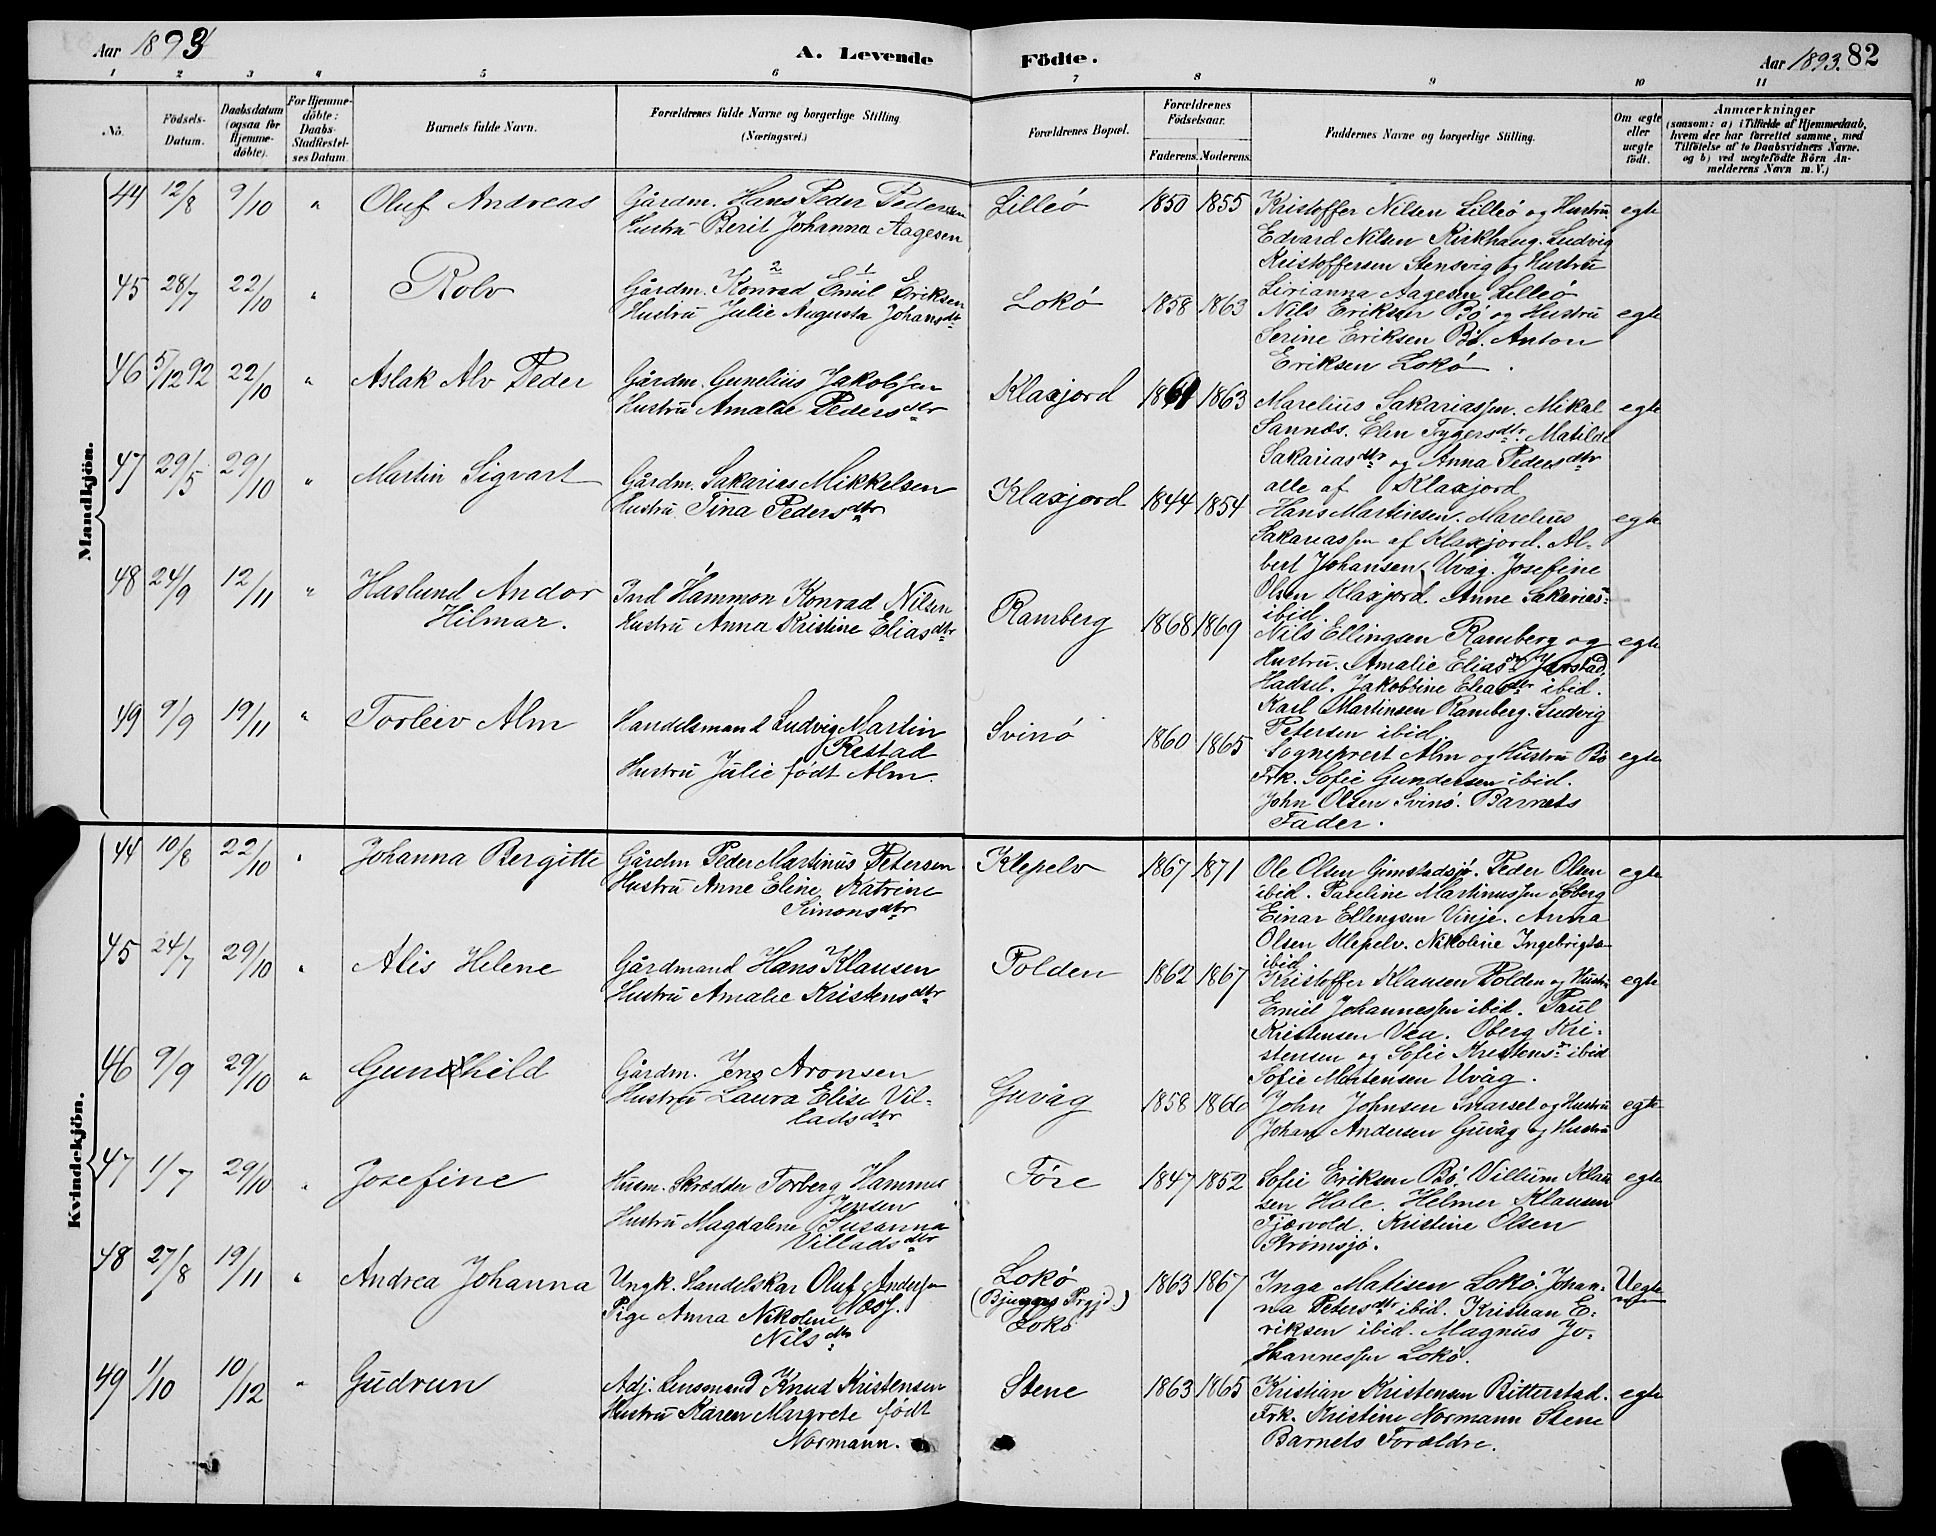 Aar 1893
A. Levende
Födte.
Aar 1893. 82
1 2 3 4 5 6 7 8 9 10 11
No.
Födsels-Datum.
Daabsdatum (ogsaa for Hjemme-döbte).
For Hjemme-döbte: Daabs-Stadfæstel-ses Datum.
Barnets fulde Navn.
Forældrenes fulde Navne og borgerlige Stilling (Næringsvei.)
Forældrenes Bopæl.
Forældrenes Födselsaar.
Faderens. Moderens.
Faddernes Navne og borgerlige Stilling.
Om ægte eller uægte födt.
Anmærkninger
(saasom: a) i Tilfælde af Hjemmedaab,
hvem der har forrettet samme, med
Tilföielse af to Daabsvidners Navne.
og b) ved uægtefödte Börn An-
melderens Navn m. V.)
Mandkjön.
44 12/8 9/10 " Oluf Andreas
Gårdm. Hans Peder Pedersen
Hustru Berit Johanna Aagesen
Lilleö 1850 1855
Kristoffer Nilsen Lilleö og Hustru
Edvard Nilsen Kirkhaug. Ludvig
Kristoffersen Stensvig og Hustru
Lirianna Aagesen Lilleö
egte
45 28/7 22/10 " Rolv
2 1
Gårdm. Konrad Emil Eriksen
Hustru Julie Augusta Johansdtr
Lokö 1858 1863
Nils Eriksen Bö og Hustru
Serine Eriksen Bö. Anton
Eriksen Lokö.
egte
46 5/12 92 22/10 " Aslak Alv Peder
Gårdm. Gunelius Jakobsen
Hustru Amalie Pedersdtr
Klaxjord 1861 1863
Marelius Sakariassen. Mikal
Sannes. Elen Tygersdtr. Matilde
Sakariasdtr og Anna Pedersdtr
alle af Klaxjord
egte
47 29/5 29/10 " Martin Sigvart
Gårdm. Sakarias Mikkelsen
Hustru Tina Pedersdtr
Klaxjord 1844 1854
Hans Martinsen. Marelius
Sakariassen af Klaxjord. Al-
bert Johansen Uvåg. Josefine
Olsen Klaxjord. Anne Sakarias-
ibid.
egte
48 24/9 12/11 " Haslund Andor
Hilmar.
Ind Hammon Konrad Nilsen
Hustru Anna Kristine Eliasdtr
Ramberg 1868 1869
Nils Ellingsen Ramberg og
Hustru. Amalie Eliasdtr Jarstad,
Hadsel. Jakobbine Eliasdtr ibid.
Karl Martinsen Ramberg. Ludvig
Petersen ibid.
egte
49 9/9 19/11 " Torleiv Alm
Handelsmand Ludvig Martin
Restad
Hustru Julie født Alm.
Svinö 1860 1865
Sogneprest Alm og Hustru Bö
Frk. Sofie Gundersen ibid.
John Olsen Svinö. Barnets
Fader.
egte
Kvindekjön.
44 10/8 22/10 " Johanna Bergitte
Gårdm Peder Martinus Petersen
Hustru Anne Eline Katrine
Simonsdtr
Klepelv 1867 1871
Ole Olsen Gimstadsjö. Peder Olsen
ibid. Pareline Martinussen Söberg
Einar Ellengsen Vinje. Anna
Olsen Klepelv. Nikoline Ingebrigts-
ibid.
egte
45 24/7 29/10 " Alis Helene
Gårdmand Hans Klausen
Hustru Amalie Kristensdtr
Polden 1862 1867
Kristoffer Klausen Polden og Hustr.
Emil Johannessen ibid. Paul
Kristensen Vea. Oberg Kri-
stensen og Sofie Kristensdr ibid
Sofie Martensen Uvåg.
egte
46 9/9 29/10 " Gunhild
Gårdm. Jens Aronsen
Hustru Laura Elise Vil-
ladsdtr
Guvåg 1858 1860
John Johnsen Snarset og Hustru
Johan Andersen Guvåg og Hustru
egte
47 1/7 29/10 " Josefine
Husm. Skrædder Torberg Hammer
Jensen
Hustru Magdalene Susanna
Villadsdtr
Före 1847 1852
Sofie Eriksen Bö. Villum Klau
sen Hale. Helmer Klausen
Fjærvold. Kristine Olsen
Strömsjö.
egte
48 27/8 19/11 " Andrea Johanna
Ungk. Handelskar Oluf Andersen
Næss.
Pige Anna Nikoline
Nilsdtr
Lokö
(Bjugns Prgjd.)
Lokö
1863 1867
Inga Matisen Lokö. Johan-
na Petersdtr ibid. Kristian E-
riksen ibid. Magnus Jo-
hannessen Lokö.
Uegte
49 1/10 10/12 " Gudrun
Adj. Lensmand Knud Kristensen
Hustru Karen Margrete født
Normann.
Stene 1863 1865
Kristian Kristensen Bitterstad.
Frk. Kristine Normann Stene
Barnets Forældre.
egte